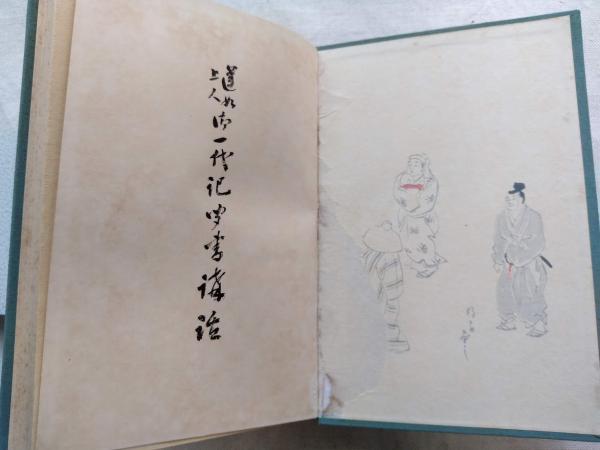 蓮如上人御一代記聞書講話